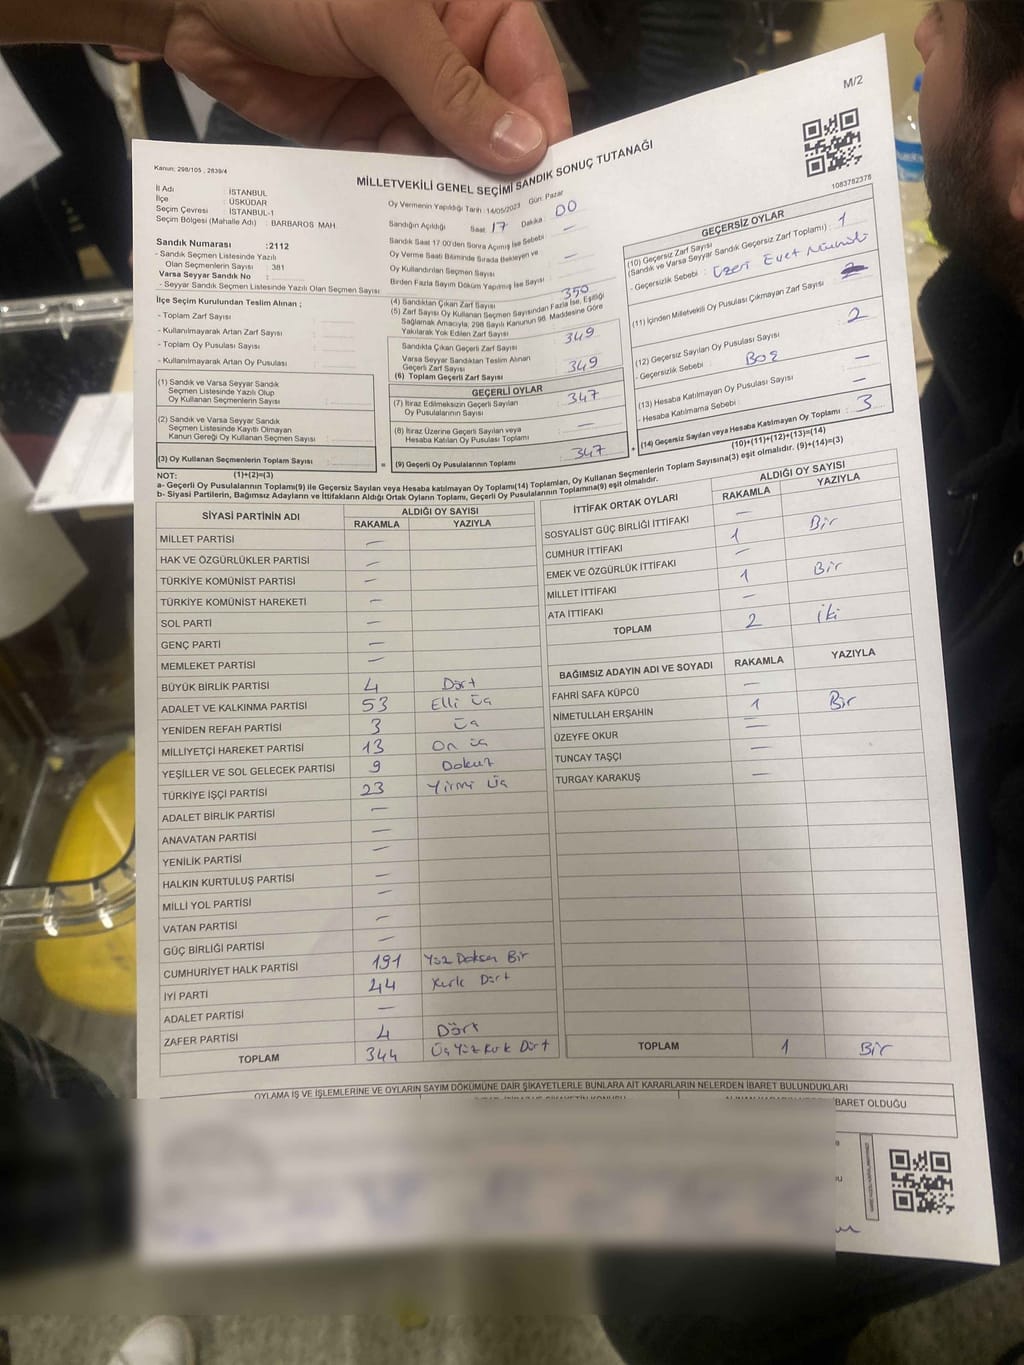 M/2
Kanun; 298/105 , 2839/4
MİLLETVEKİLİ GENEL SEÇİMİ SANDIK SONUÇ TUTANAĞI
1083782378
İl Adı : İSTANBUL
İlçe : ÜSKÜDAR
Seçim Çevresi : İSTANBUL-1
Seçim Bölgesi (Mahalle Adı) : BARBAROS MAH.
Sandık Numarası :2112
- Sandık Seçmen Listesinde Yazılı
Olan Seçmenlerin Sayısı : 381
Varsa Seyyar Sandık No :
- Seyyar Sandık Seçmen Listesinde Yazılı Olan Seçmenlerin Sayısı :
İlçe Seçim Kurulundan Teslim Alınan ;
- Toplam Zarf Sayısı :
- Kullanılmayarak Artan Zarf Sayısı :
- Toplam Oy Pusulası Sayısı :
- Kullanılmayarak Artan Oy Pusulası :
(1) Sandık ve Varsa Seyyar Sandık
Seçmen Listesinde Yazılı Olup
Oy Kullanan Seçmenlerin Sayısı :
(2) Sandık ve Varsa Seyyar Sandık
Seçmen Listesinde Kayıtlı Olmayan
Kanun Gereği Oy Kullanan Seçmen Sayısı :
(3) Oy Kullanan Seçmenlerin Toplam Sayısı :
(1)+(2)=(3)
Oy Vermenin Yapıldığı Tarih : 14/05/2023 Gün: Pazar
Sandığın Açıldığı Saat : 17 Dakika : 00
Sandık Saat 17.00'den Sonra Açılmış İse Sebebi : —
Oy Verme Saati Bitiminde Sırada Bekleyen ve
Oy Kullandırılan Seçmen Sayısı : —
Birden Fazla Sayım Döküm Yapılmış İse Sayısı :
(4) Sandıktan Çıkan Zarf Sayısı : 350
(5) Zarf Sayısı Oy Kullanan Seçmen Sayısından Fazla İse, Eşitliği
Sağlamak Amacıyla, 298 Sayılı Kanunun 98. Maddesine Göre
Yakılarak Yok Edilen Zarf Sayısı :
Sandıkta Çıkan Geçerli Zarf Sayısı : 349
Varsa Seyyar Sandıktan Teslim Alınan
Geçerli Zarf Sayısı :
(6) Toplam Geçerli Zarf Sayısı : 349
GEÇERLİ OYLAR
(7) İtiraz Edilmeksizin Geçerli Sayılan
Oy Pusulalarının Sayısı : 347
(8) İtiraz Üzerine Geçerli Sayılan veya
Hesaba Katılan Oy Pusulası Toplamı : —
(9) Geçerli Oy Pusulalarının Toplamı : 347
GEÇERSİZ OYLAR
(10) Geçersiz Zarf Sayısı
(Sandık ve Varsa Seyyar Sandık Geçersiz Zarf Toplamı) : 1
- Geçersizlik Sebebi : Üzeri Evet Mühürlü
(11) İçinden Milletvekili Oy Pusulası Çıkmayan Zarf Sayısı :
(12) Geçersiz Sayılan Oy Pusulası Sayısı : 2
- Geçersizlik Sebebi : Boş
(13) Hesaba Katılmayan Oy Pusulası Sayısı : —
- Hesaba Katılmama Sebebi : —
(14) Geçersiz Sayılan veya Hesaba Katılmayan Oy Toplamı : 3
(10)+(11)+(12)+(13)=(14)
NOT:
a- Geçerli Oy Pusulalarının Toplamı(9) ile Geçersiz Sayılan veya Hesaba katılmayan Oy Toplamı(14) Toplamları, Oy Kullanan Seçmenlerin Toplam Sayısına(3) eşit olmalıdır. (9)+(14)=(3)
b- Siyasi Partilerin, Bağımsız Adayların ve İttifakların Aldığı Ortak Oyların Toplamı, Geçerli Oy Pusulalarının Toplamına(9) eşit olmalıdır.
SİYASİ PARTİNİN ADI ALDIĞI OY SAYISI
RAKAMLA YAZIYLA
MİLLET PARTİSİ —
HAK VE ÖZGÜRLÜKLER PARTİSİ —
TÜRKİYE KOMÜNİST PARTİSİ —
TÜRKİYE KOMÜNİST HAREKETİ —
SOL PARTİ —
GENÇ PARTİ —
MEMLEKET PARTİSİ —
BÜYÜK BİRLİK PARTİSİ 4 Dört
ADALET VE KALKINMA PARTİSİ 53 Elli Üç
YENİDEN REFAH PARTİSİ 3 Üç
MİLLİYETÇİ HAREKET PARTİSİ 13 On üç
YEŞİLLER VE SOL GELECEK PARTİSİ 9 Dokuz
TÜRKİYE İŞÇİ PARTİSİ 23 Yirmi Üç
ADALET BİRLİK PARTİSİ —
ANAVATAN PARTİSİ —
YENİLİK PARTİSİ —
HALKIN KURTULUŞ PARTİSİ —
MİLLİ YOL PARTİSİ —
VATAN PARTİSİ —
GÜÇ BİRLİĞİ PARTİSİ —
CUMHURİYET HALK PARTİSİ 191 Yüz Doksan Bir
İYİ PARTİ 44 Kırk Dört
ADALET PARTİSİ —
ZAFER PARTİSİ 4 Dört
TOPLAM 344 Üç Yüz Kırk Dört
İTTİFAK ORTAK OYLARI ALDIĞI OY SAYISI
RAKAMLA YAZIYLA
SOSYALİST GÜÇ BİRLİĞİ İTTİFAKI —
CUMHUR İTTİFAKI 1 Bir
EMEK VE ÖZGÜRLÜK İTTİFAKI —
MİLLET İTTİFAKI 1 Bir
ATA İTTİFAKI —
TOPLAM 2 İki
BAĞIMSIZ ADAYIN ADI VE SOYADI RAKAMLA YAZIYLA
FAHRİ SAFA KÜPCÜ —
NİMETULLAH ERŞAHİN 1 Bir
ÜZEYFE OKUR —
TUNCAY TAŞÇI —
TURGAY KARAKUŞ —
TOPLAM 1 Bir
OYLAMA İŞ VE İŞLEMLERİNE VE OYLARIN SAYIM DÖKÜMÜNE DAİR ŞİKAYETLERLE BUNLARA AİT KARARLARIN NELERDEN İBARET BULUNDUKLARI
BARET OLDUĞU